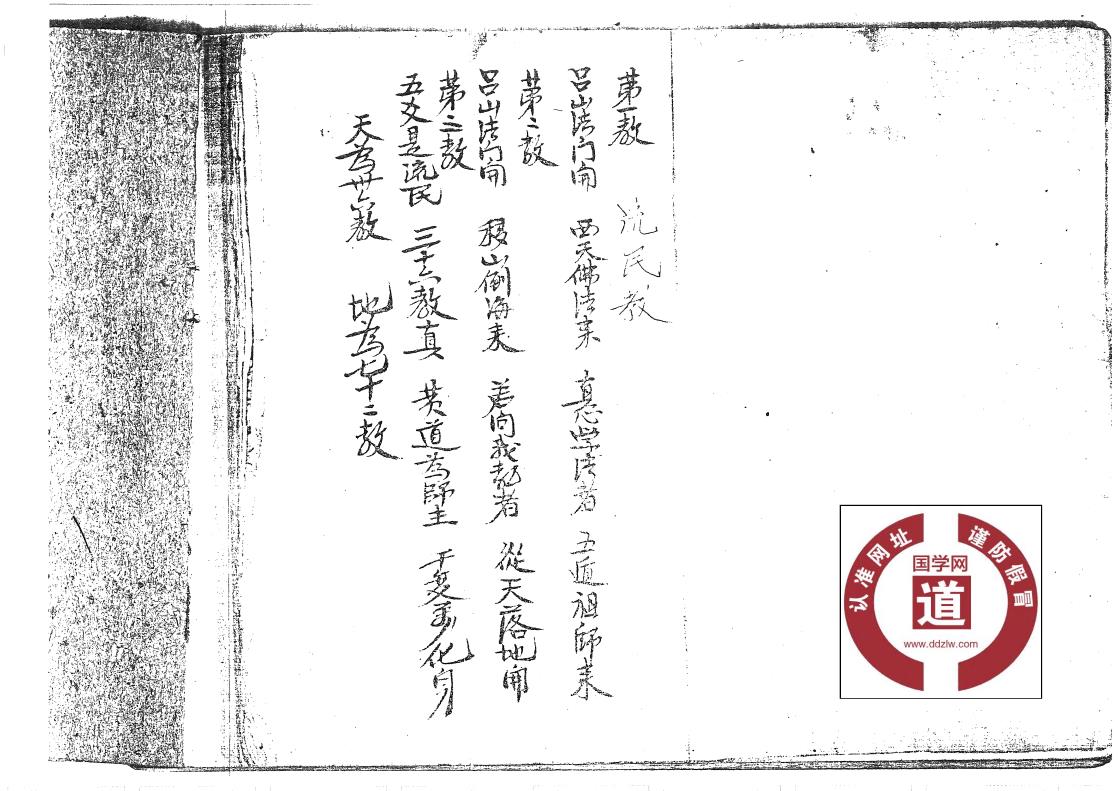 第一教
流民教
吕山法门開 西天佛法来 真心学法者 五遁祖師来
第二教
吕山法门開 移山倒海来 若向我教者 從天落地開
第三教
五父是流民 三十六教真 黄道為師主 千变万化身
天為卅六教 地為七十二教
认准网址 谨防假冒
国学网
道
www.ddzlw.com